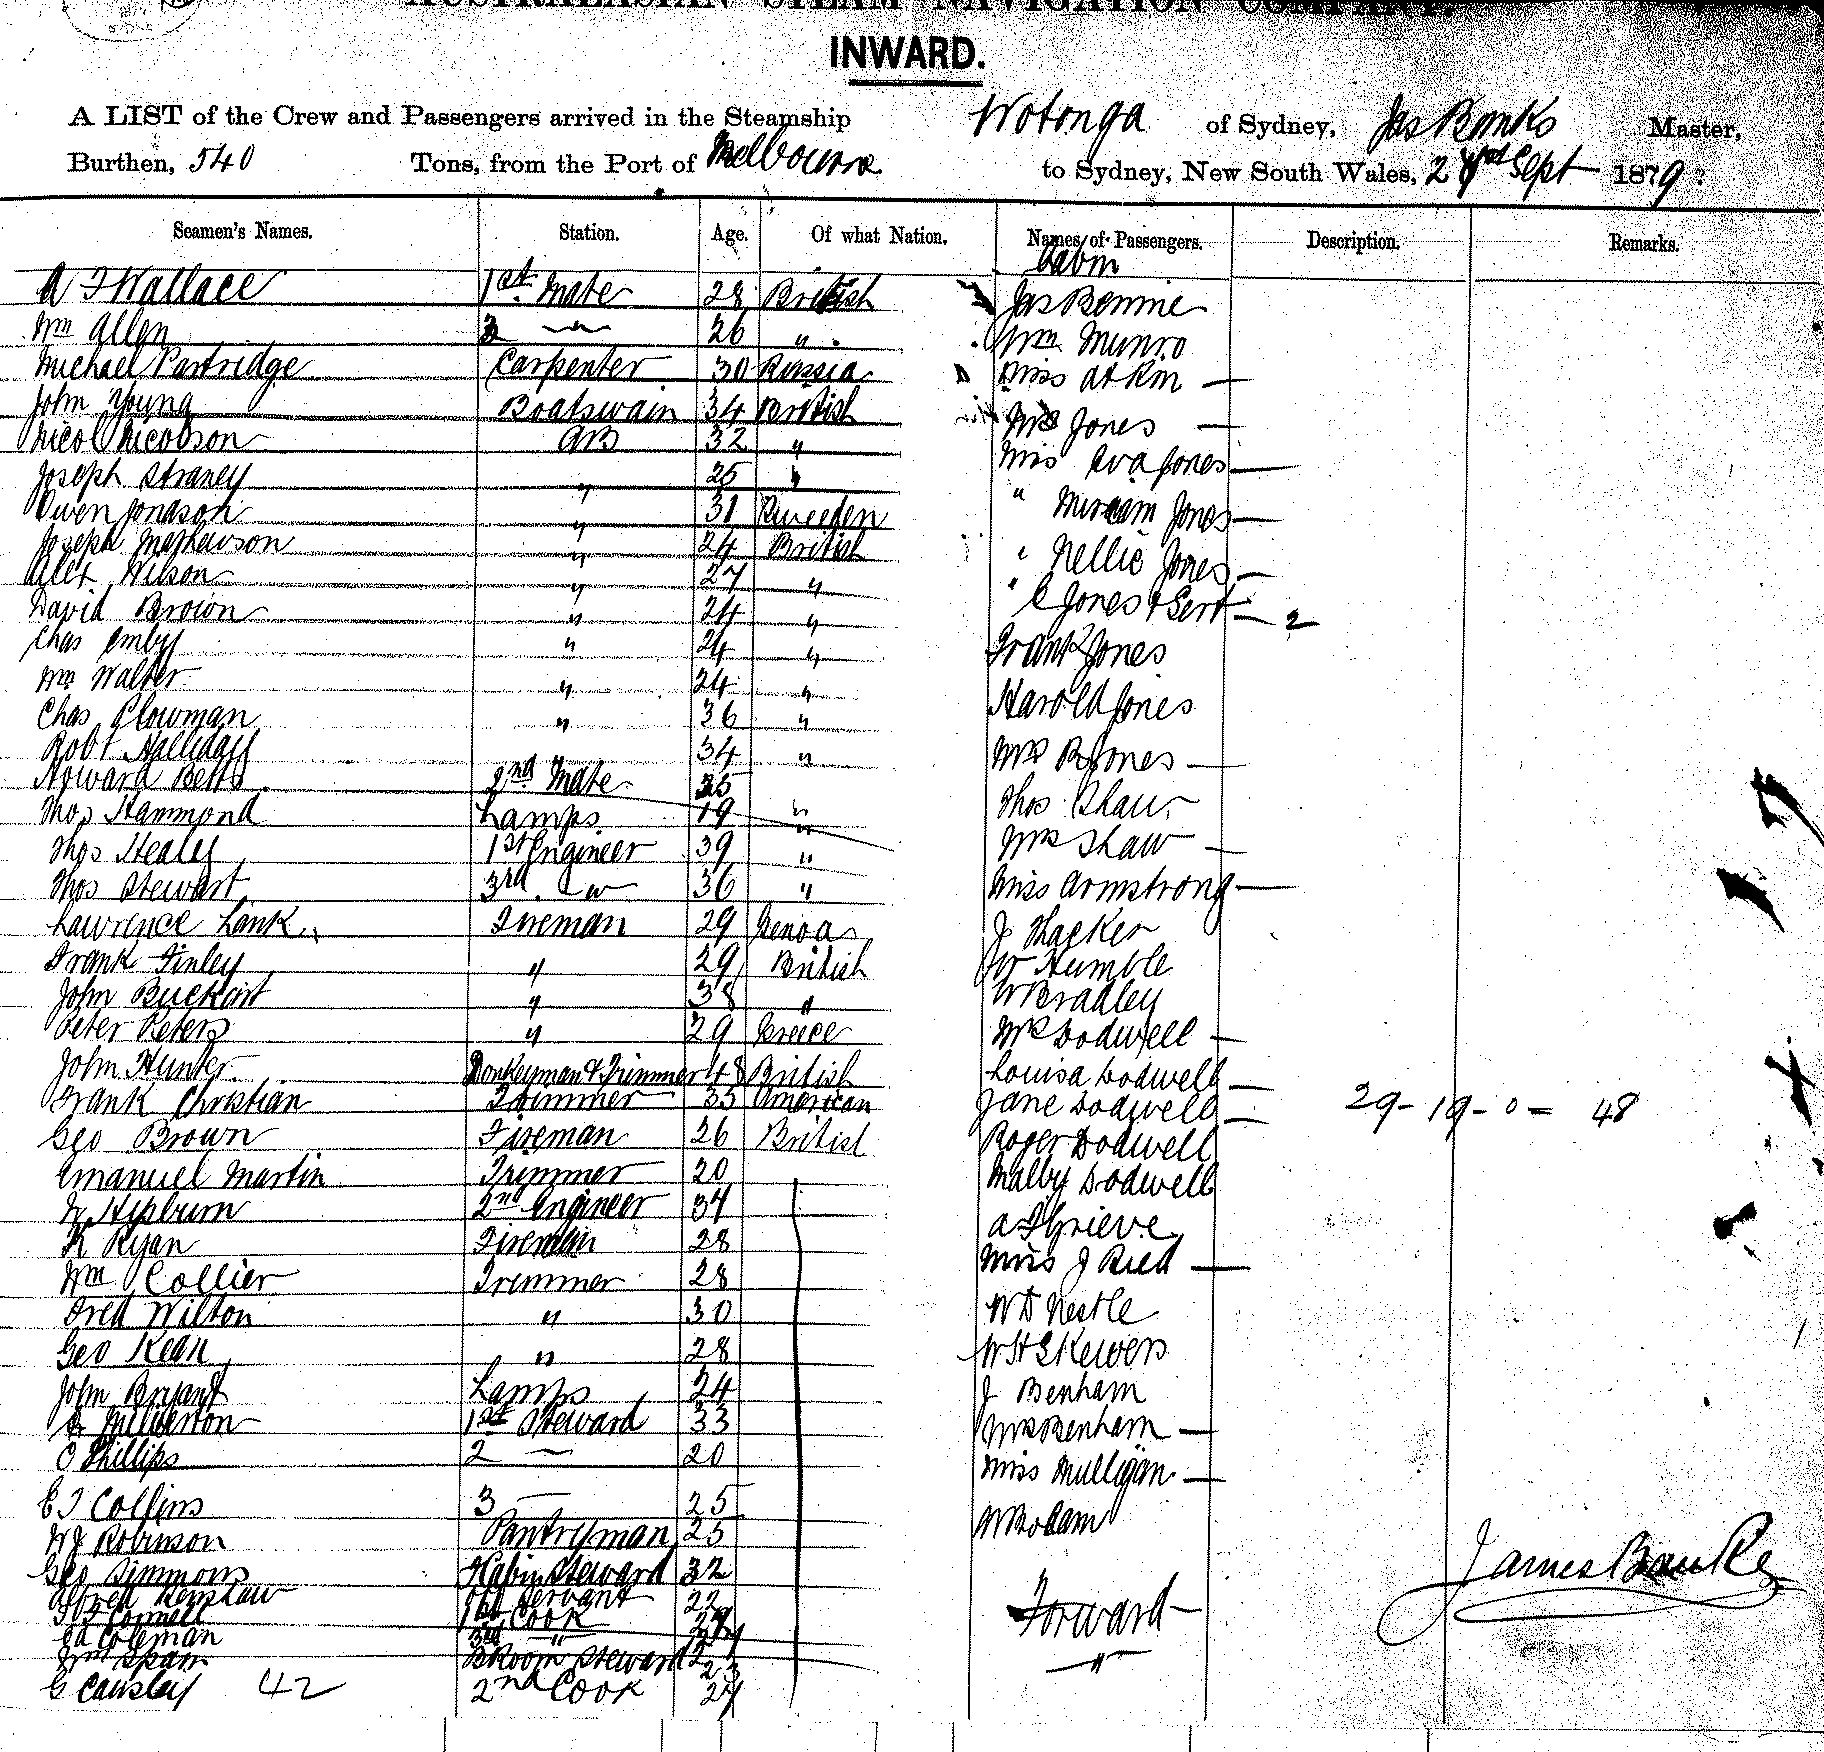 AUSTRALASIAN STEAM NAVIGATION COMPANY.
INWARD.
A LIST of the Crew and Passengers arrived in the Steamship Wotonga of Sydney, Jas Banks Master,
Burthen, 540 Tons, from the Port of Melbourne to Sydney, New South Wales, Sept 1879
Seamen's Names. Station. Age. Of what Nation. Names of Passengers. Description. Remarks.
Cabin
A F Wallace 1st Mate 28 British Jas Bennie
Wm Allen 26 " Wm Munro
Michael Partridge Carpenter 30 Russia Miss Atkin —
John Young Boatswain 34 British Mrs Jones —
Nicol Nicolson AB 32 " Miss Eva Jones —
Joseph Straney " 25 " " Miream Jones —
Owen Jonason " 31 Sweeden " Nellie Jones —
Joseph Mathewson " 24 British " C Jones & Sert — 2
Alex Wilson " 27 " Frank Jones
David Brown " 24 " Harold Jones
Chas " 24 " Mrs B Jones —
Wm Walter " 24 " Thos Shaw
Chas Plowman " 36 " Mrs Shaw —
Robt Halliday 34 " Miss Armstrong —
Howard Betts 2nd Mate 35 J Thacker
Thos Hammond Lamps 19 " W Humble
Thos Healey 1st Engineer 39 " W Bradley
Thos Stewart 3rd " 36 " Mrs Dodwell —
Lawrence Lank Fireman 29 Genoa Louisa Dodwell —
Frank Finley " 29 British Jane Dodwell — 29 - 19 - 0 = 48
John Buckart " 38 " Roger Dodwell
Peter Peters " 29 Greece Malby Dodwell
John Hunter Donkeyman & Trimmer 48 British A F Grieve
Frank Christian Trimmer 35 American Miss J Reed —
Geo Brown Fireman 26 British W D Nestle
Emanuel Martin Trimmer 20 W H Skewers
Hepburn 2nd Engineer 34 J Benham
Ryan Fireman 28 Mrs Benham —
Wm Collier Trimmer 28 Miss Mulligan —
Fred Wilton " 30 W Bolam
Geo Kean " 28 Forward
John Bryant Lamps 24 "
1st Steward 33
C Phillips 2 — 20
C J Collins 3 — 25
W J Robinson Pantryman 25
Geo Simmons F Cabin Steward 32 James Banks
Alfred Renshaw Servant 22
Connell 1st Cook
Ed Coleman 3rd "
Wm Spain B Room Steward 23
G Causley 42 2nd Cook 24